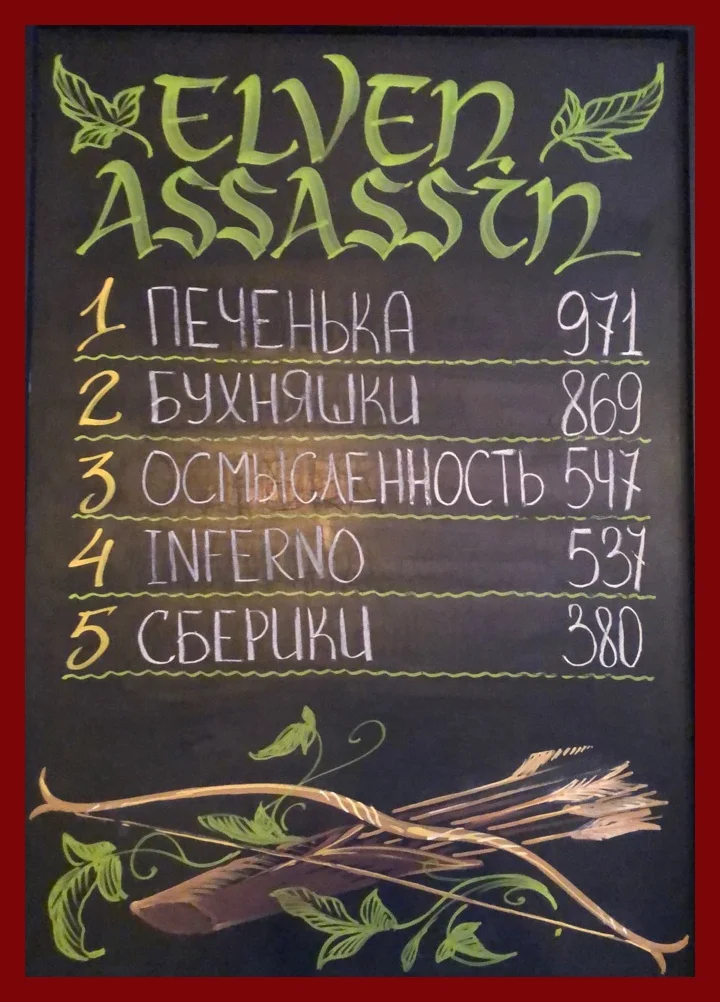 ELVEN
ASSASSiN
1 ПЕЧЕНЬКА 971
2 БУХНЯШКИ 869
3 ОСМЫСЛЕННОСТЬ 547
4 INFERNO 537
5 СБЕРИКИ 380